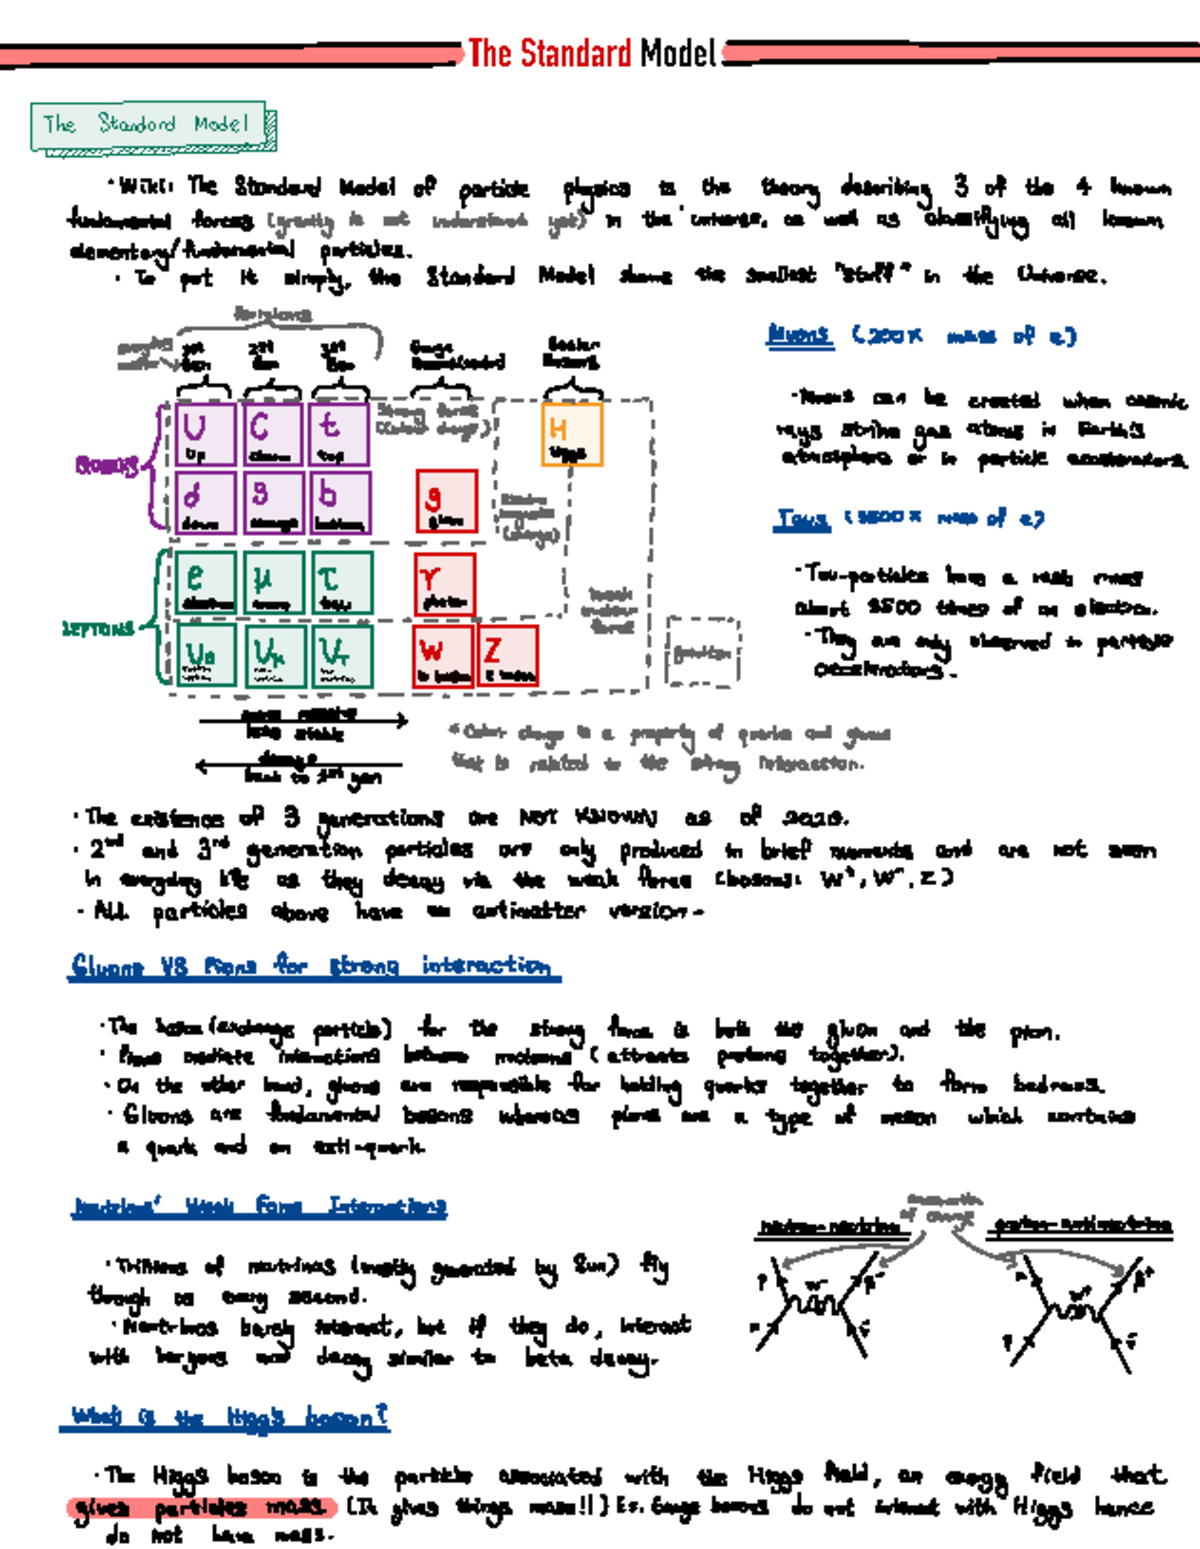 The Standard Model
The Standard Model
· Wiki: The Standard Model of particle physics is the theory describing 3 of the 4 known
fundamental forces (gravity is not understood yet) in the universe, as well as classifying all known
elementary/fundamental particles.
· To put it simply, the Standard Model shows the smallest "stuff" in the Universe.
Fermions
1st Gen
2nd Gen
3rd Gen
Gauge
Scalar Bosons
Muons (200x mass of e)
· Muons can be created when cosmic
rays strike gas atoms in Earth's
atmosphere or in particle accelerators.
QUARKS
U up
C charm
t top
Strong force
(Colour charge)
H Higgs
d down
S strange
b bottom
g gluon
(charge)
Taus (3500x mass of e)
· Tau-particles have a rest mass
about 3500 times of an electron.
· They are only observed in particle
accelerators.
LEPTONS
e electron
μ muon
τ tau
γ photon
weak nuclear force
νe
νμ
ντ
W W boson
Z Z boson
graviton
less stable
decays
back to 1st gen
* Color charge is a property of quarks and gluons
that is related to the strong interaction.
· The existence of 3 generations are NOT KNOWN as of
· 2nd and 3rd generation particles are only produced in brief moments and are not seen
in everyday life as they decay via the weak force (bosons: W⁺, W⁻, Z)
· ALL particles above have an antimatter version.
Gluons VS Pions for strong interaction
· The boson (exchange particle) for the strong force is both the gluon and the pion.
· Pions mediate interactions between nucleons (attracts protons together).
· On the other hand, gluons are responsible for holding quarks together to form hadrons.
· Gluons are fundamental bosons whereas pions are a type of meson which contains
a quark and an anti-quark.
Neutrinos' Weak Force Interactions
· Trillions of neutrinos (mostly generated by Sun) fly
through us every second.
· Neutrinos barely interact, but if they do, interact
with baryons and decay similar to beta decay.
of charge
neutron-neutrino
proton-antineutrino
W⁻
W⁺
What is the Higgs boson?
· The Higgs boson is the particle associated with the Higgs field, an energy field that
gives particles mass. (It gives things mass!!) Ex. Gauge bosons do not interact with Higgs hence
do not have mass.